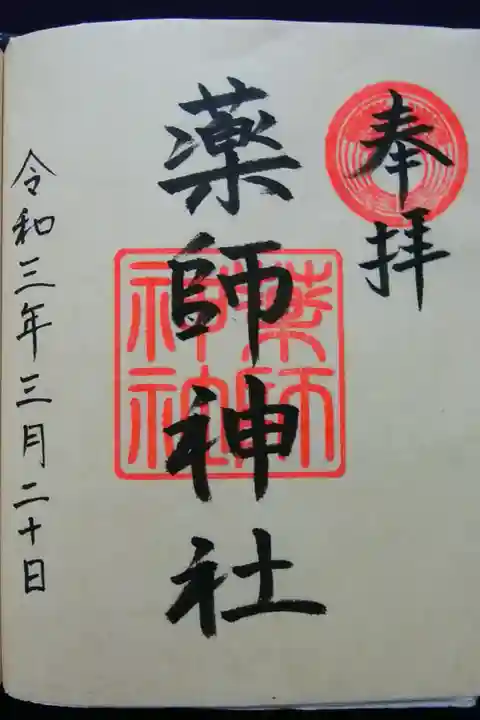 奉拝
薬師神社
薬師
神社
令和三年三月二十日